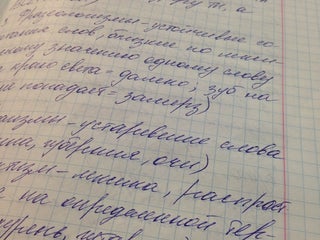 ру т. а
Фразеологизмы - устойчивые со-
слов, близкие по лекси-
значению одному слову
края света = далеко, зуб на
не попадает = замерз)
измы - устаревшие слова
очи)
измы - лексика, распрост
на определенной тер-